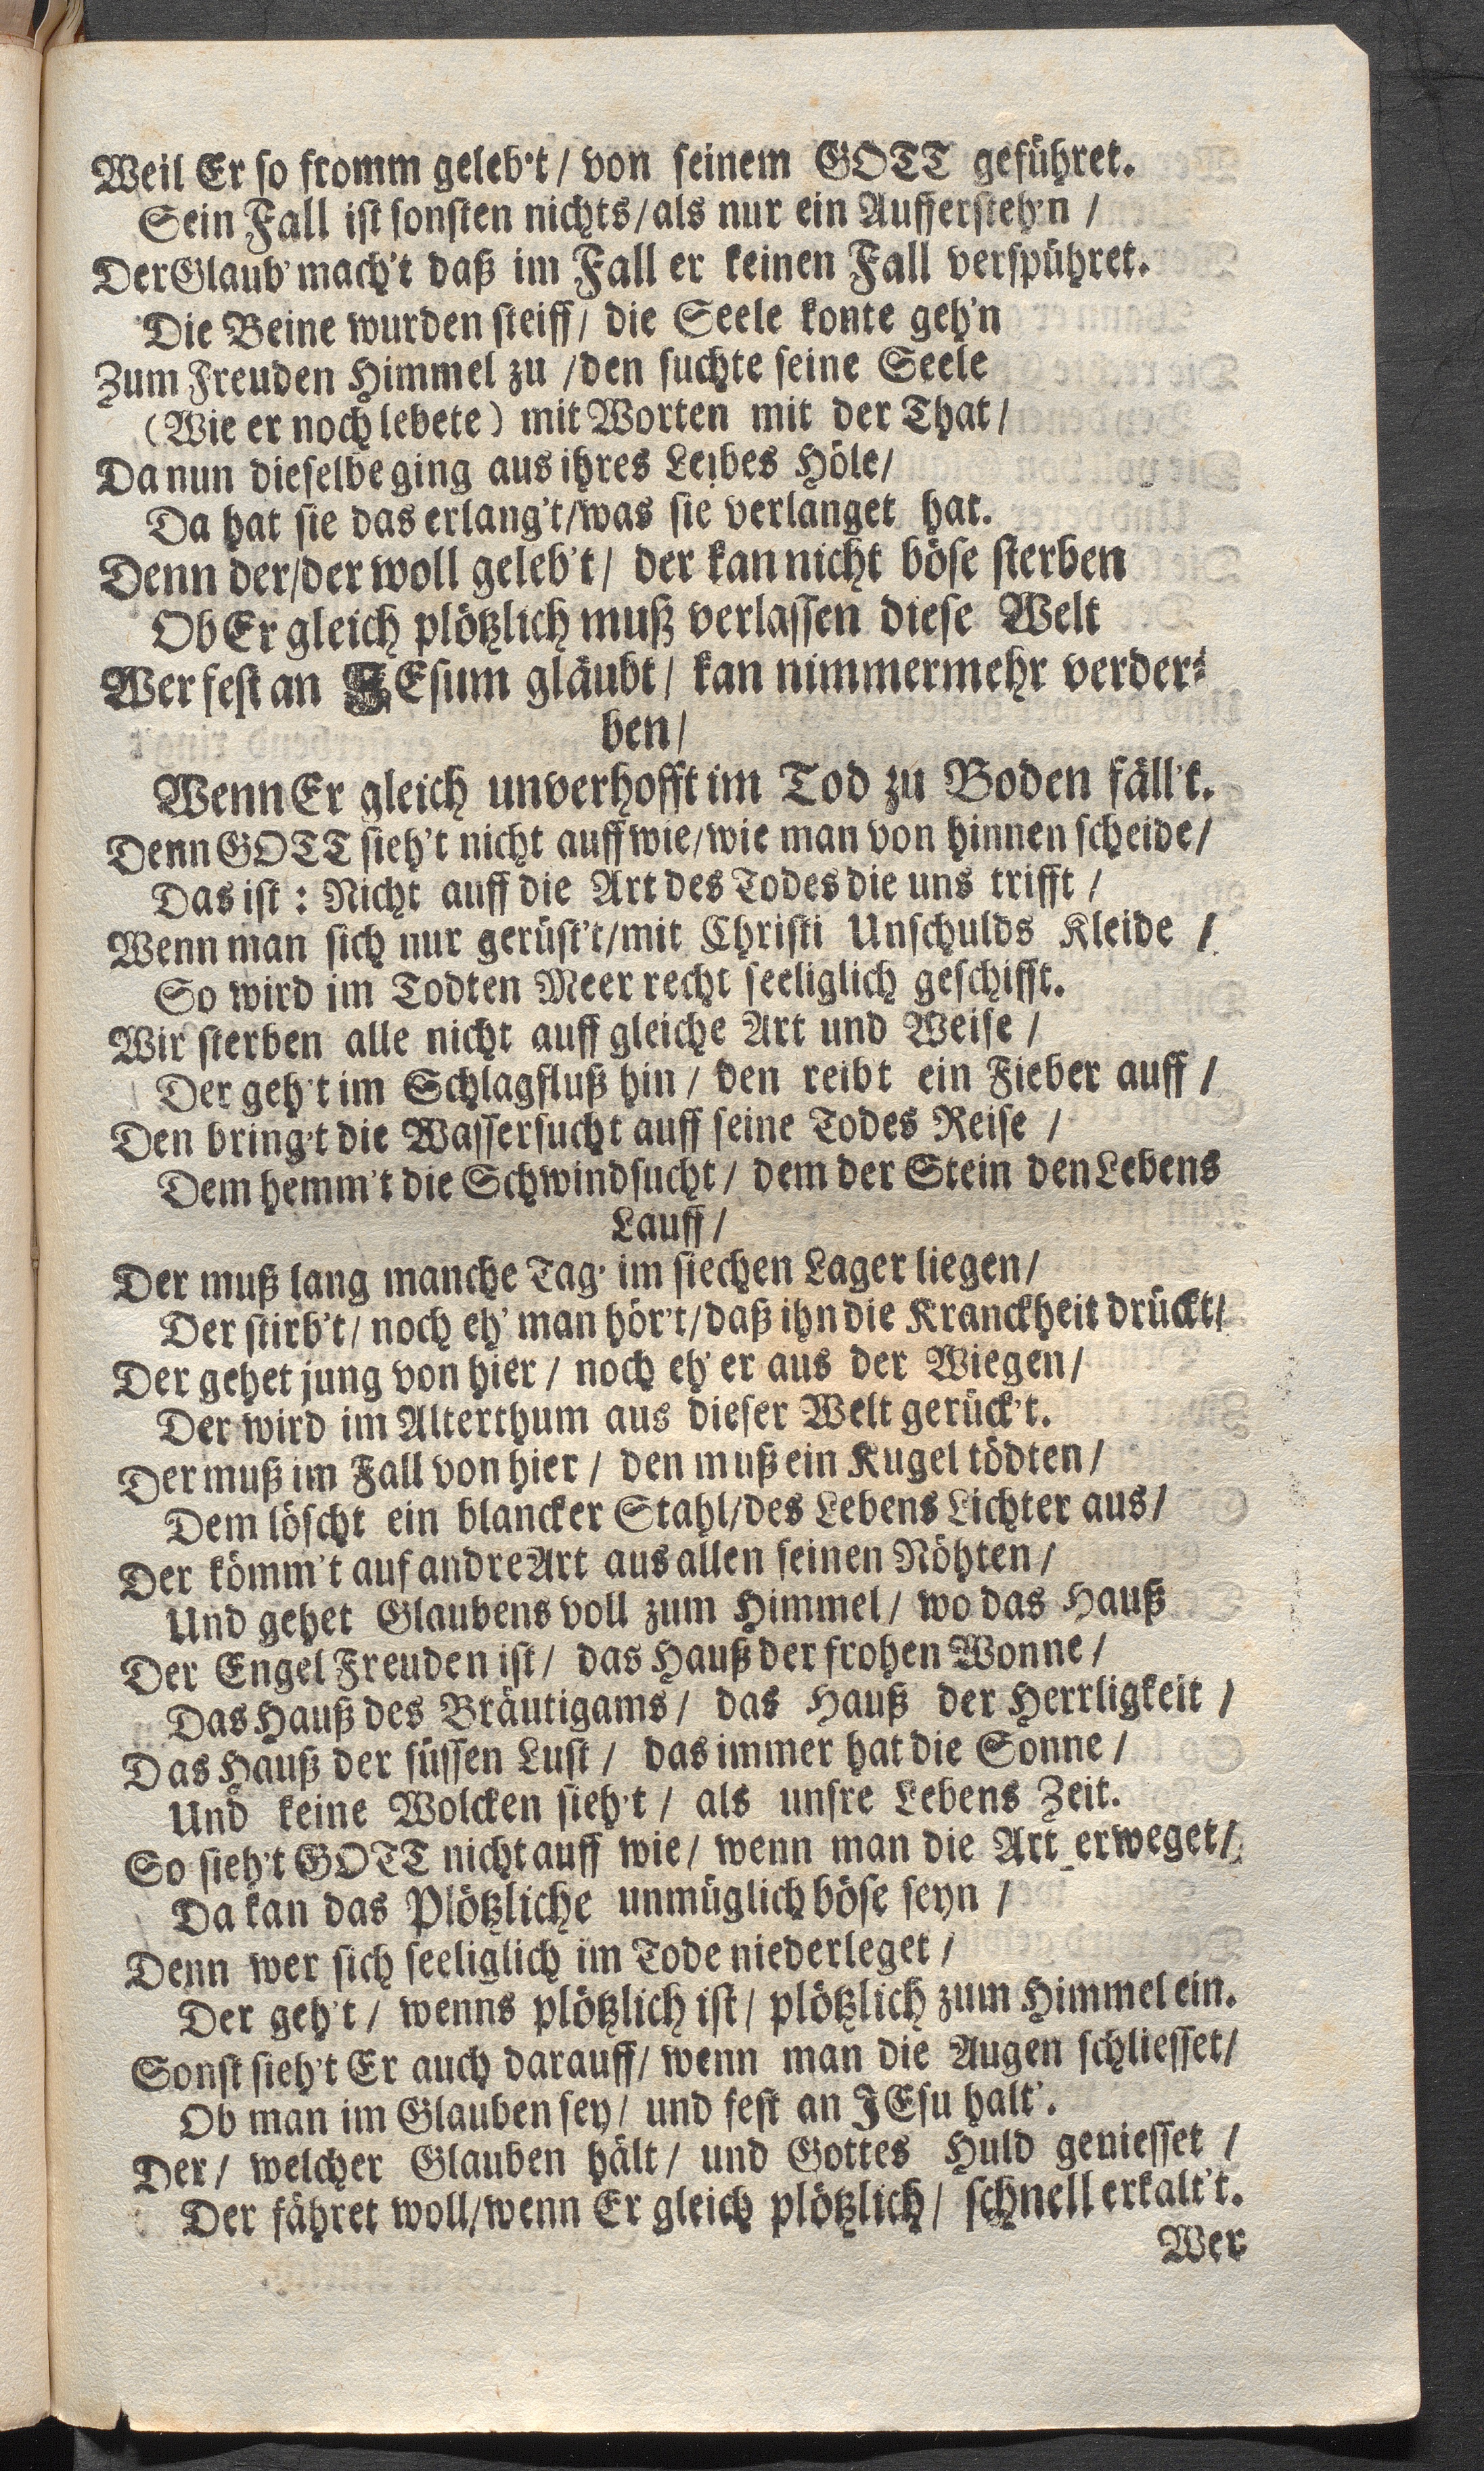 Weil Er so fromm geleb't / von seinem GOTT geführet.
Sein Fall ist sonsten nichts / als nur ein Aufferſteh'n /
Der Glaub' mach't daß im Fall er keinen Fall verspühret.
Die Beine wurden steiff / die Seele konte geh'n
Zum Freuden Himmel zu / den suchte seine Seele
(Wie er noch lebete) mit Worten mit der That /
Da nun dieselbe ging aus ihres Leibes Höle /
Da hat sie das erlang't / was sie verlanget hat.
Denn der / der woll geleb't / der kan nicht böse sterben
Ob Er gleich plötzlich muß verlassen diese Welt
Wer fest an JEsum gläubt / kan nimmermehr verder-
ben /
Wenn Er gleich unverhofft im Tod zu Boden fäll't.
Denn GOTT sieh't nicht auff wie / wie man von hinnen scheide /
Das ist : Nicht auff die Art des Todes die uns trifft /
Wenn man sich nur gerüst't / mit Christi Unschulds Kleide /
So wird im Todten Meer recht seeliglich geschifft.
Wir sterben alle nicht auff gleiche Art und Weise /
Der geh't im Schlagfluß hin / den reibt ein Fieber auff /
Den bring't die Wassersucht auff seine Todes Reise /
Dem hemm't die Schwindsucht / dem der Stein den Lebens
Lauff /
Der muß lang manche Tag' im siechen Lager liegen /
Der stirb't / noch eh' man hör't / daß ihn die Kranckheit drückt /
Der gehet jung von hier / noch eh' er aus der Wiegen /
Der wird im Alterthum aus dieser Welt gerück't.
Der muß im Fall von hier / den muß ein Kugel tödten /
Dem löscht ein blancker Stahl / des Lebens Lichter aus /
Der kömm't auf andre Art aus allen seinen Nöhten /
Und gehet Glaubens voll zum Himmel / wo das Hauß
Der Engel Freuden ist / das Hauß der frohen Wonne /
Das Hauß des Bräutigams / das Hauß der Herrligkeit /
Das Hauß der süssen Lust / das immer hat die Sonne /
Und keine Wolcken sieh't / als unsre Lebens Zeit.
So sieh't GOTT nicht auff wie / wenn man die Art erweget /
Da kan das Plötzliche unmüglich böse seyn /
Denn wer sich seeliglich im Tode niederleget /
Der geh't / wenns plötzlich ist / plötzlich zum Himmel ein.
Sonst sieh't Er auch darauff / wenn man die Augen schliesset /
Ob man im Glauben sey / und fest an JEsu halt'.
Der / welcher Glauben hält / und Gottes Huld geniesset /
Der fähret woll / wenn Er gleich plötzlich / schnell erkalt't.
Wer